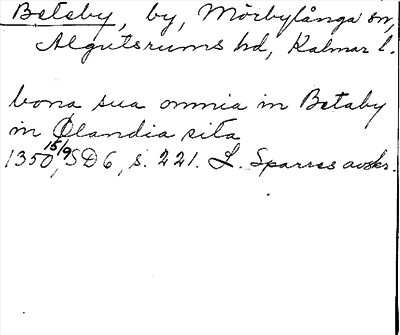 Betaby, by, Mörbylånga sn,
Algutsrums hd, Kalmar l.
bona sua omnia in Betaby
in Ølandia sita
1350 15/9, SD6, s. 221. L. Sparres avskr.